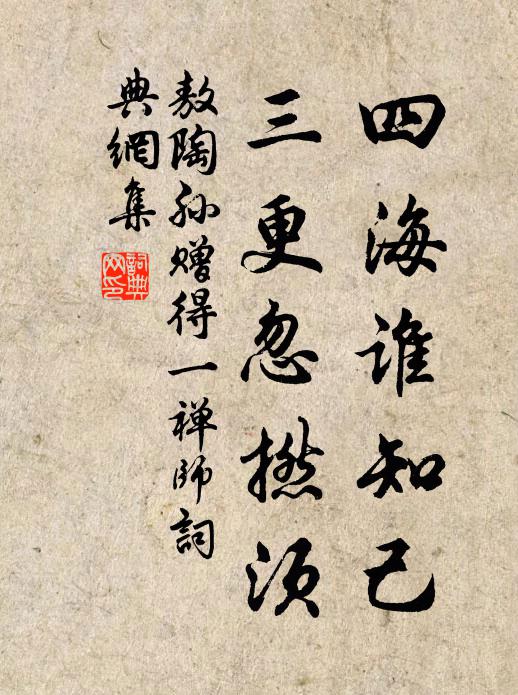 四海谁知己
三更忽撚须
敖陶孙赠得一禅师詞
典網集
詞典网印